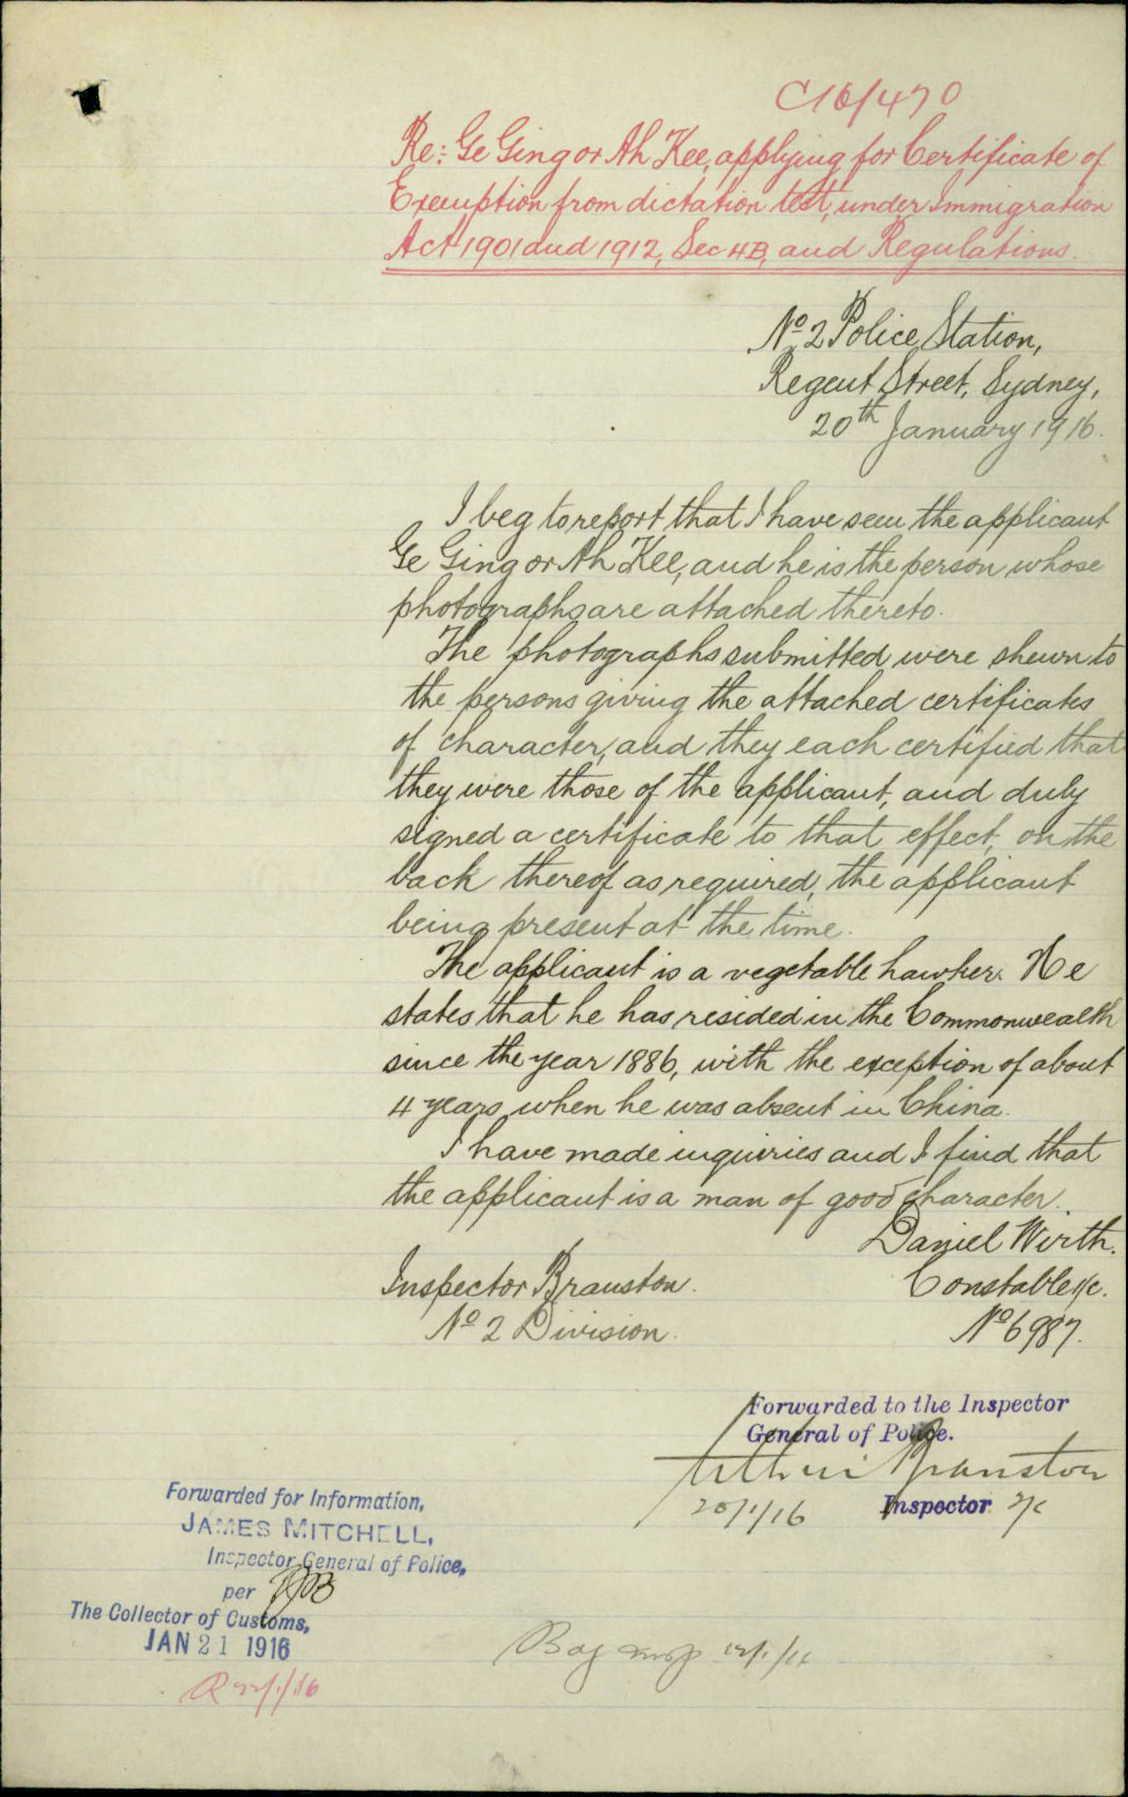 C16/470
Re:- Ge Ging or Ah Kee, applying for Certificate of
Exemption from dictation test, under Immigration
Act 1901 and 1912, Sec 4B, and Regulations.
No 2 Police Station,
Regent Street, Sydney,
20th January 1916.
I beg to report that I have seen the applicant
Ge Ging or Ah Kee, and he is the person whose
photographs are attached thereto.
The photographs submitted were shewn to
the persons giving the attached certificates
of character, and they each certified that
they were those of the applicant, and duly
signed a certificate to that effect, on the
back thereof as required, the applicant
being present at the time.
The applicant is a vegetable hawker. He
states that he has resided in the Commonwealth
since the year 1886, with the exception of about
4 years when he was absent in China.
I have made inquiries and I find that
the applicant is a man of good character.
Daniel Wirth.
Inspector Branston.
Constable 1/c.
No 2 Division.
No 6987.
Forwarded to the Inspector
General of Police.
Arthur Branston
20/1/16 Inspector
Forwarded for Information,
JAMES MITCHELL,
Inspector General of Police,
per
The Collector of Customs,
JAN 21 1916